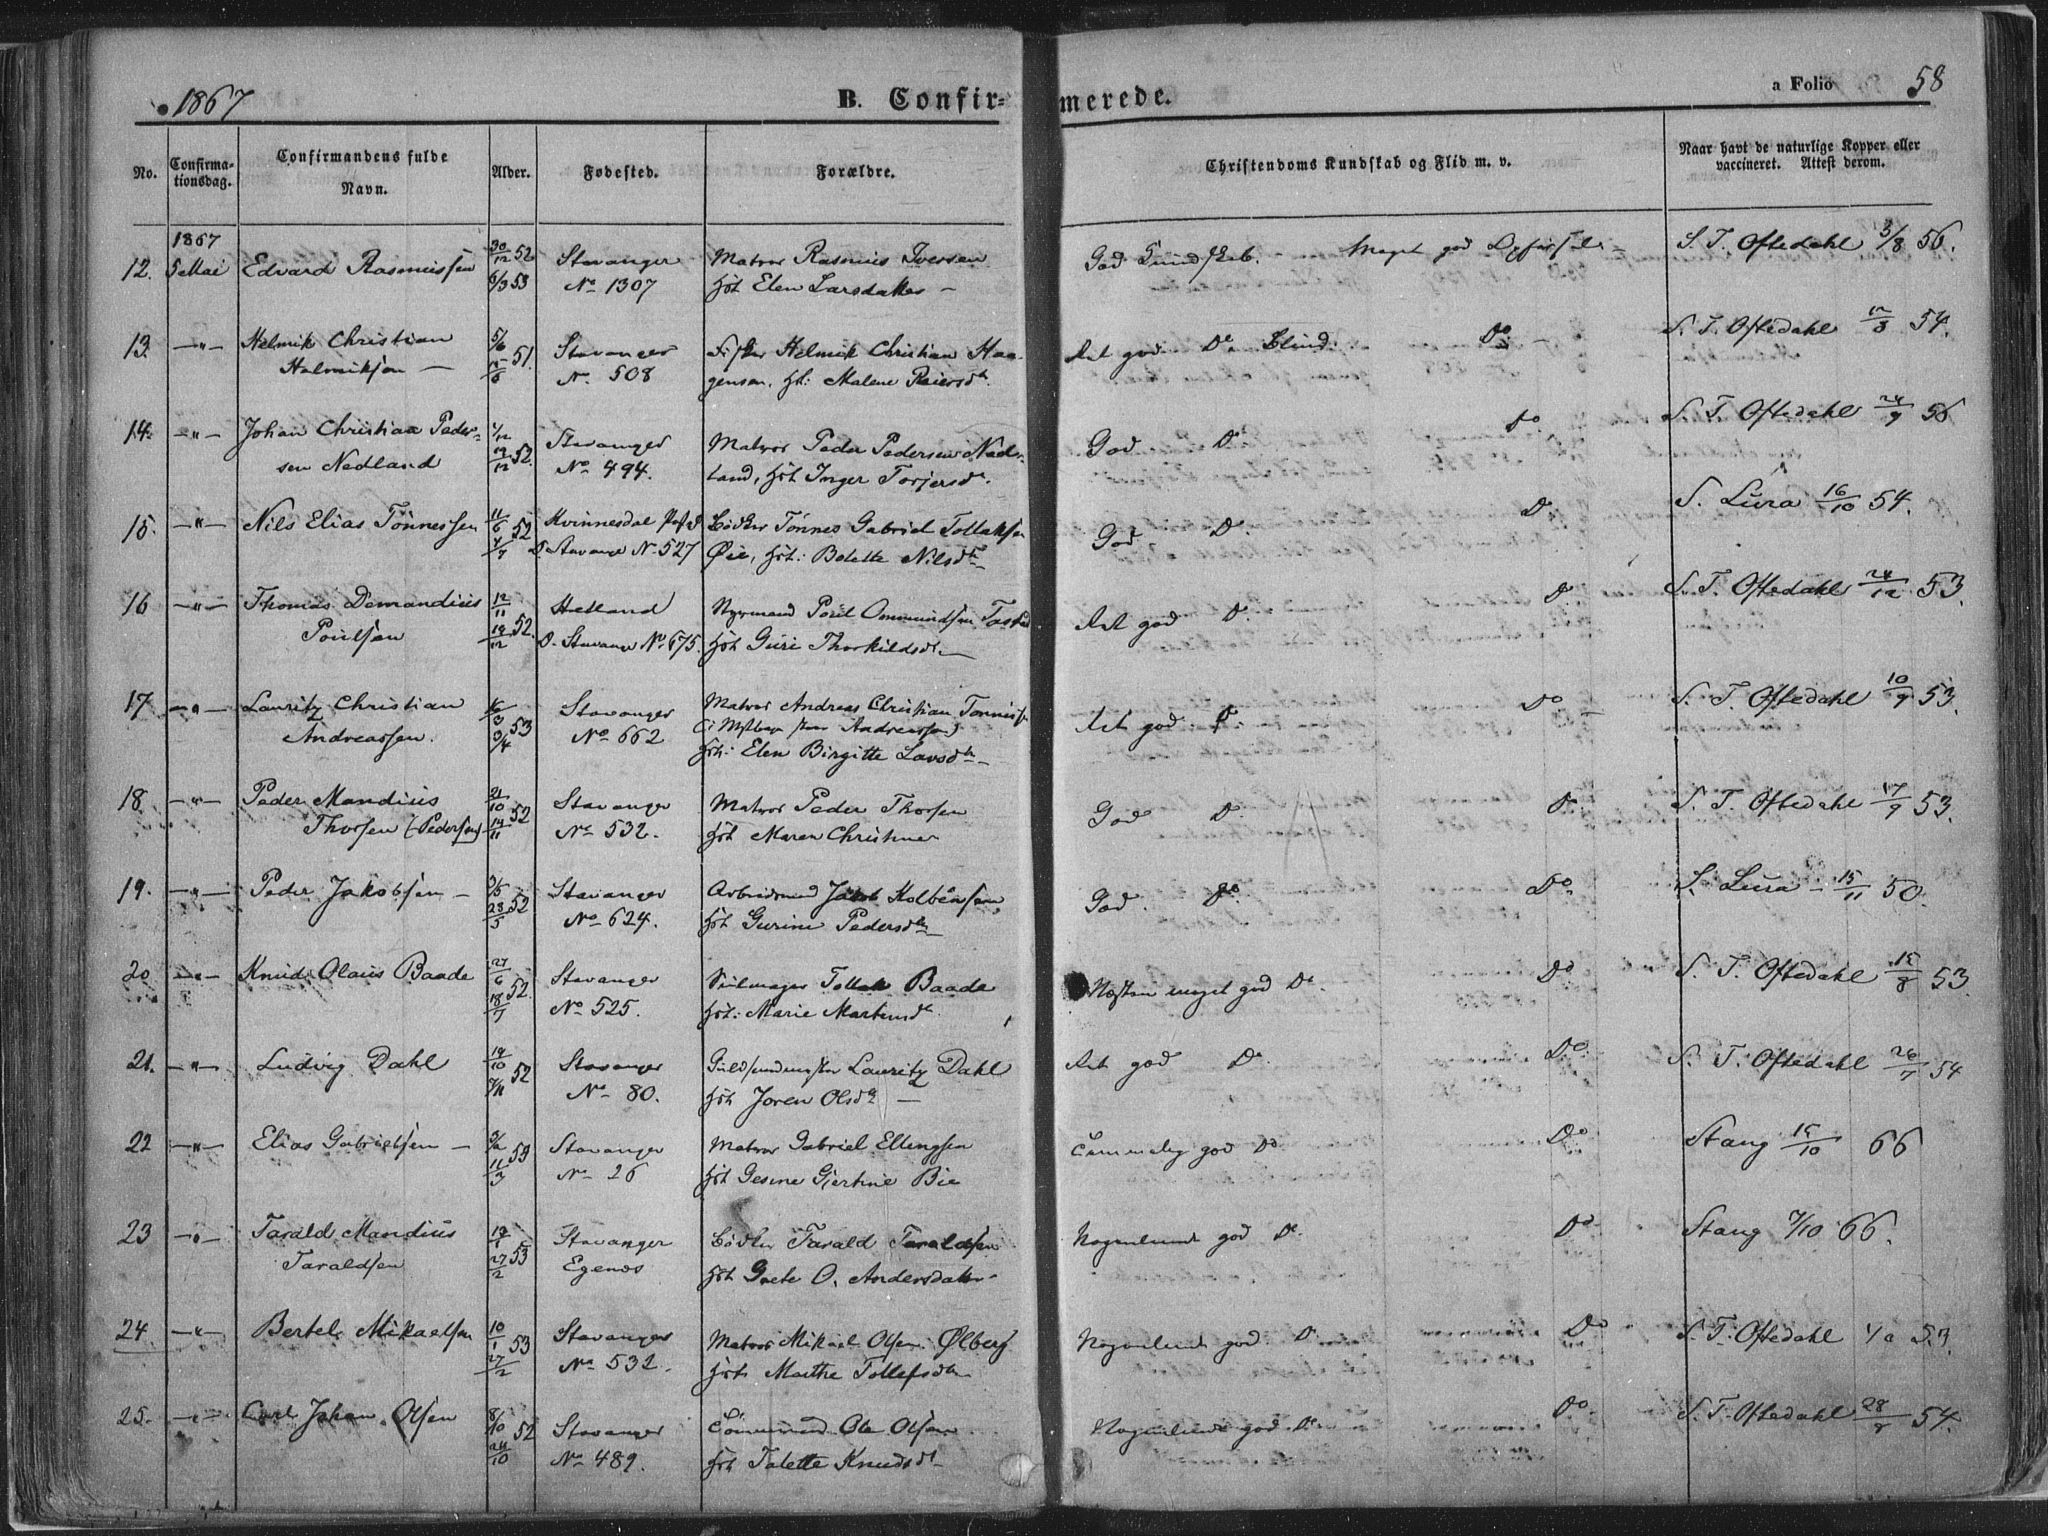 1867
B. Confir-
merede.
a Folio 58
No.
Confirma-
tionsdag.
Confirmandens fulde
Navn.
Alder.
Fødested.
Forældre.
Christendoms Kundskab og Flid m. v.
Naar havt de naturlige Kopper eller
vaccineret. Attest derom.
1867
12. 5 Mai Edvard Rasmussen 30/12 52 Stavanger Matros Rasmus Iversen God Kundskab. Meget god Opførsel S. T. Oftedahl 3/8 56.
6/3 53 No 1307 Hst Elen Larsdatter
13. —"— Helmik Christian 5/6 51. Stavanger Helmik Christian Haa- Ret god Do Do S. T. Oftedahl 12/8 54.
Helmiksen No 508 gensen, Hst: Malene Reiersdtr.
14. —"— Johan Christian Peder- 1/12 52. Stavanger Matros Peder Pedersen Ned- God Do Do S. T. Oftedahl 24/9 56
sen Nedland 19/12 No 494. land, Hst Inger Torjersdtr.
15. —"— Nils Elias Tönnessen 11/6 52 Kvinnesdal Bödker Tönnes Gabriel Tollaksen God Do Do S. Lura 16/10 54.
D. Stavanger No 527 Øie, Hst: Bolette Nilsdtr
16 —"— Thomas Domandius 12/11 52. Hetland Poul Ommundsen Tasta Ret god Do Do S. T. Oftedahl 24/12 53.
Poulsen 19/12 D. Stavanger No 675. Hst Guri Thorkildsdtr
17 —"— Lauritz Christian 53 Stavanger Matros Andreas Christian Ret god Do Do S. T. Oftedahl 10/9 53.
Andreassen. 3/4 No 662 Andreassen)
Hst: Elen Birgitte Larsdtr
18. —"— Peder Mandius 21/10 52 Stavanger Matros Peder Thorsen God Do Do S. T. Oftedahl 17/9 53.
Thorsen (Pedersen) 14/11 No 532. Hst Maren Christine
19. —"— Peder Jakobsen 3/5 52 Stavanger Arbeidsmd Jakob Kolbensen God. Do Do S. Lura 15/11 50.
23/5 No 624. Hst Gurine Pedersdtr
20 —"— Knud Olaus Baade 27/6 52. Stavanger Seilmager Tollak Baade Næsten meget god Do. Do S. T. Oftedahl 15/8 53.
18/7 No 525. Hst: Marie Martensdtr.
21. —"— Ludvig Dahl 19/10 52 Stavanger Guldsmedmester Lauritz Dahl Ret god Do. Do S. T. Oftedahl 26/7 54
7/11 No 80. Hst Joren Olsdtr
22 —"— Elias Gabrielsen 53 Stavanger Matros Gabriel Ellingsen Temmelig god Do Do Stang 15/10 66
11/3 No 26 Hst Gesine Gjertine Bie
23 —"— Tarald Mandius 53 Stavanger Bödker Tarald Taraldsen Nogenlunde god Do. Do Stang 7/10 66.
Taraldsen 27/2 Egenes Hst Grete O. Andersdatter
24. —"— Bertel Mikaelsen 10/1 53 Stavanger Matros Mikael Olsen Ølberg Nogenlunde god Do Do S. T. Oftedahl 53.
27/2 No 532. Hst. Marthe Tollefsdtr
25. —"— Carl Johan Olsen 8/10 52 Stavanger Ole Olsen Nogenlunde god Do Do S. T. Oftedahl 28/8 54.
24/10 No 489. Hst Talette Knudsdtr